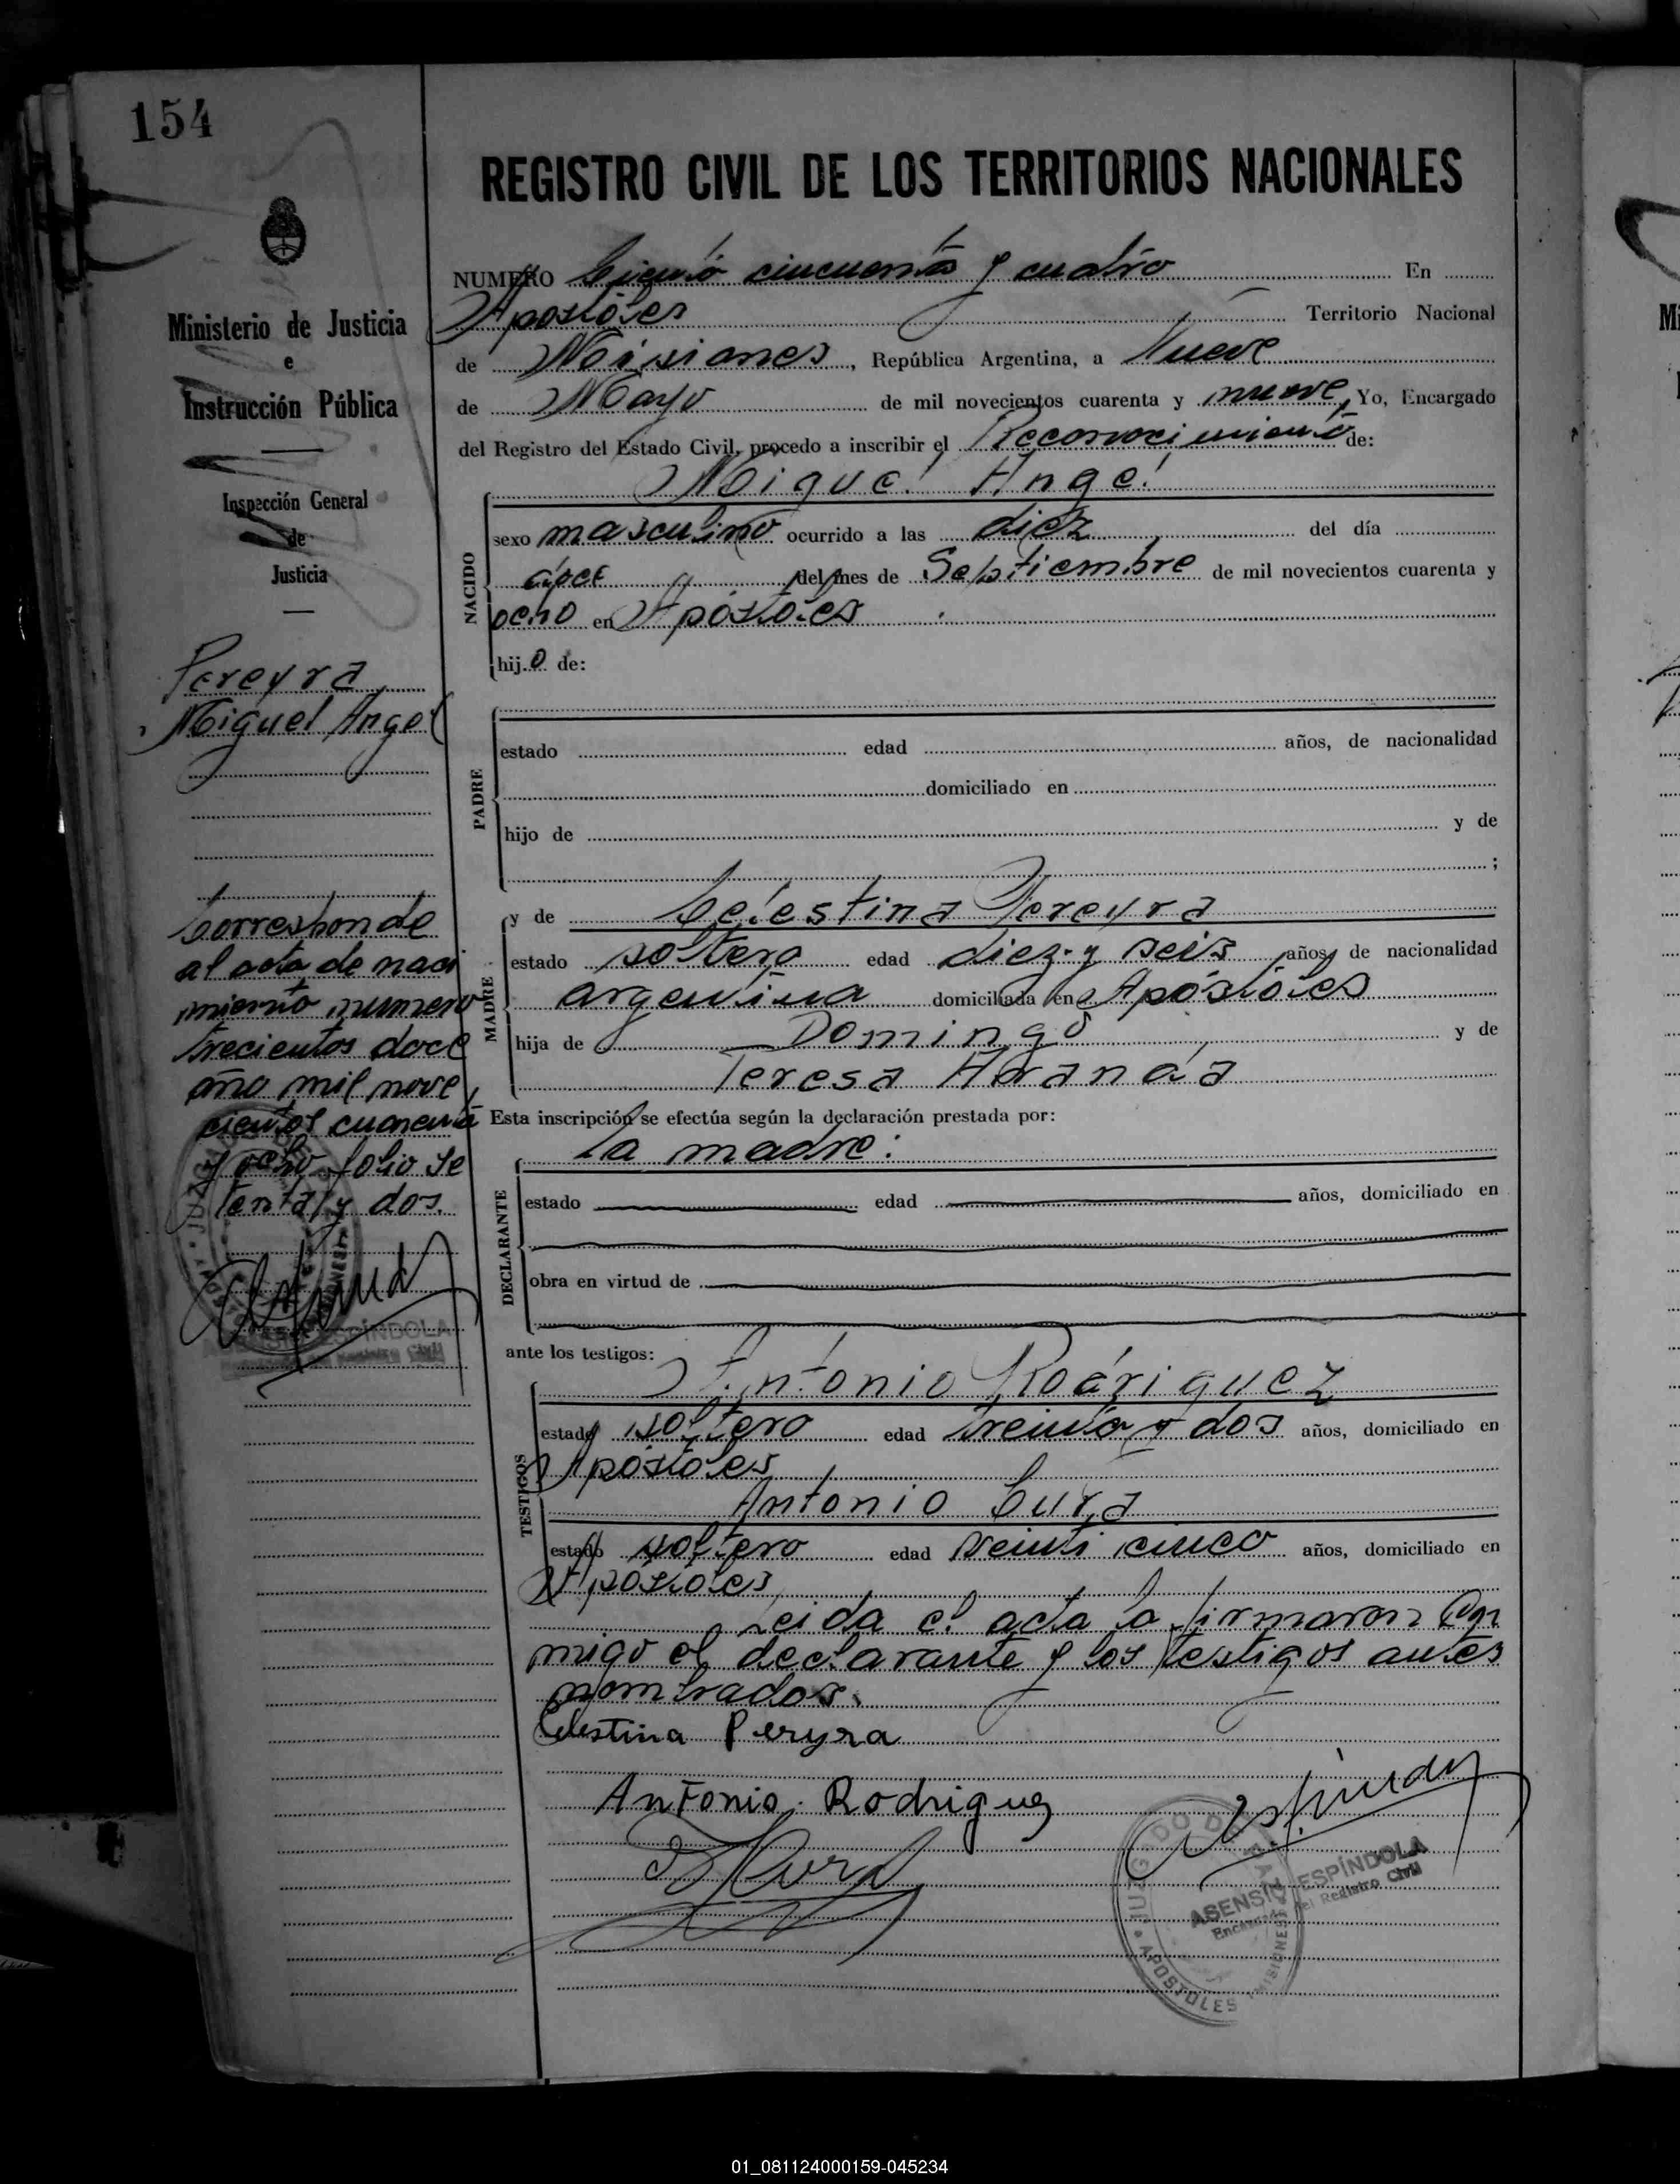 154
REGISTRO CIVIL DE LOS TERRITORIOS NACIONALES
NUMERO Ciento cincuenta y cuatro En
Apostoles Territorio Nacional
de Misiones, República Argentina, a Nueve
de Mayo de mil novecientos cuarenta y nueve, Yo, Encargado
del Registro del Estado Civil, procedo a inscribir el Reconocimiento de:
Miguel Angel
NACIDO
sexo masculino ocurrido a las diez del día
doce del mes de Septiembre de mil novecientos cuarenta y
ocho en Apóstoles
hijo de:
PADRE
estado edad años, de nacionalidad
domiciliado en
hijo de y de
;
y de Celestina Pereyra
MADRE
estado soltera edad diez y seis años, de nacionalidad
argentina domiciliada en Apóstoles
hija de Domingo y de
Teresa
Esta inscripción se efectúa según la declaración prestada por:
la madre:
DECLARANTE
estado edad años, domiciliado en
obra en virtud de
ante los testigos:
Antonio Rodriguez
TESTIGOS
estado soltero edad treinta y dos años, domiciliado en
Apóstoles
Antonio Cura
estado soltero edad veinti cinco años, domiciliado en
Apóstoles
Leida el acta la firmaron con
migo el declarante y los testigos antes
nombrados.
Celestina Peryra
Antonio Rodriguez
JUZGADO DE PAZ
APOSTOLES MISIONES
ASENSIO ESPÍNDOLA
Encargado del Registro Civil
Ministerio de Justicia
e
Instrucción Pública
Inspección General
de
Justicia
Pereyra
Miguel Angel
Corresponde
al acta de naci
miento numero
trecientos doce
año mil nove
cientos cuarenta
y ocho folio se
tenta y dos.
ESPÍNDOLA
01_081124000159-045234